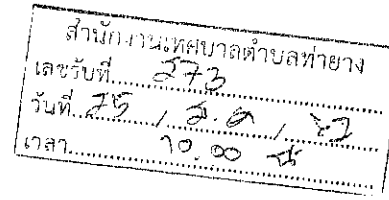 สำนักงานเทศบาลตำบลท่ายาง
เลขรับที่ 273
วันที่ 25 / /
เวลา 10.00 น